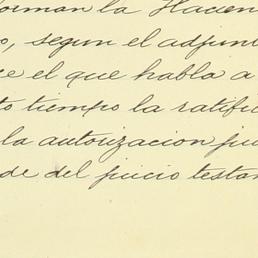 forman la Hacien
o, segun el adjunt
ce el que habla a
to tiempo la ratific
la autorizacion ju
de del juicio testam